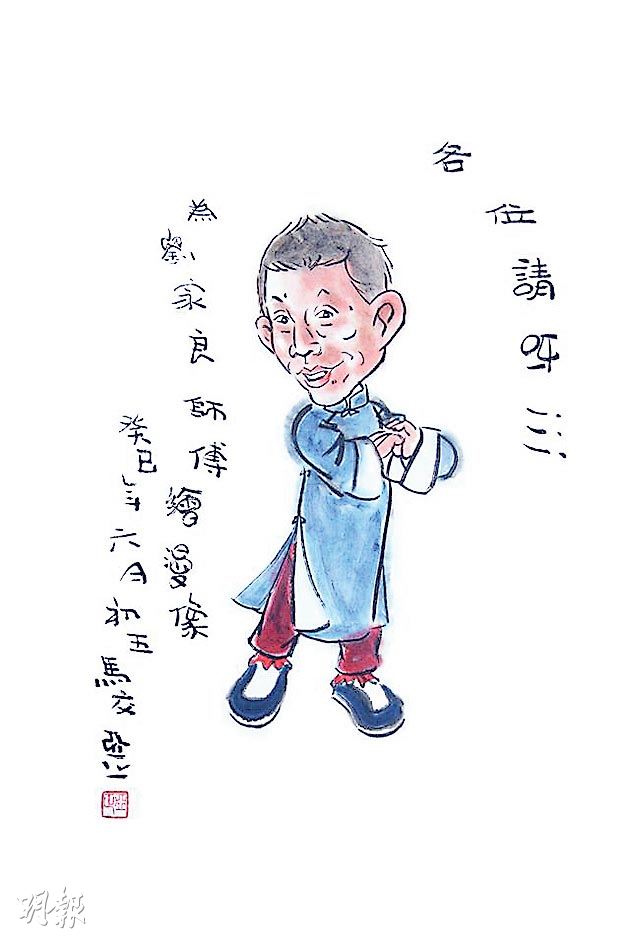 各位請呀
為劉家良師傅繪漫像
癸巳年六月初五馬交
明報